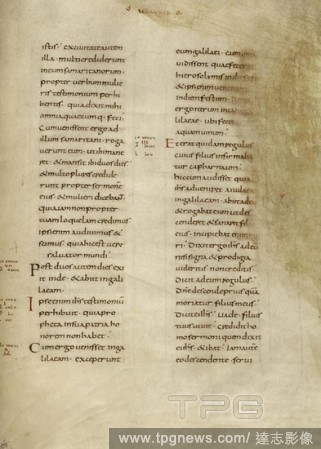 istis · Ex civitate autem
illa · multi crediderunt
in eum samaritanorum
propter verbum mulie
ris testimonium perhi
bentis · quia dixit mihi
omnia quaecumq· feci
Cum venissent ergo ad
illum samaritani · roga
verunt eum · ut ibi mane
ret · & mansit ibi duos dies
& multo plures credide
runt propter sermone
eius · & mulieri dicebant
quia iam non propter
tuam loquelam credimus
ipsi enim audivimus &
scimus · quia hic est vere
salvator mundi
Post duos autem dies ex
it inde · & abiit in gali
laeam
Ipse enim ihs testimoniu
perhibuit · quia pro
pheta in sua patria ho
norem non habet
Cum ergo venisset in ga
lilaeam · exceperunt
eum galilaei · cum om
vidissent quae fece
hierosolimis in die fe
& ipsi enim vene
in diem festum
ergo iterum in
lilaeae · ubi fe
aquam vinum
Et erat quidam regulus
cuius filius infirmaba
tur capharnaum
hic cum audisset quia
ihs adveniret a iudaea
in galilaeam · abiit ad
& rogabat eum ut des
cenderet & sanaret fili
eius · incipiebat enim
ri · Dixit ergo ihs ad eu
nisi signa & prodigia
videritis non creditis
Dicit ad eum regulus
Dne descende prius qua
moriatur filius meus
Dicit ei ihs · vade · filius
tuus vivit · credidit ho
mo sermoni quem dixit
ei ihs · & ibat · Iam aute
eo descendente · servi
TPG
www.tpgnews.com / 達志影像